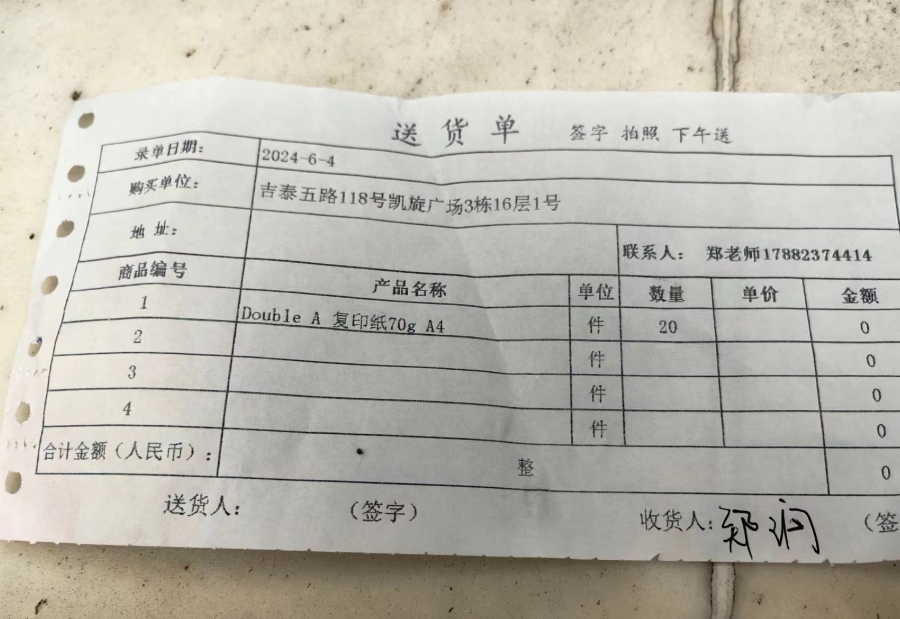 送货单 签字 拍照 下午送
录单日期: 2024-6-4
购买单位: 吉泰五路118号凯旋广场3栋16层1号
地 址: 联系人: 郑老师17882374414
商品编号 产品名称 单位 数量 单价 金额
1 Double A 复印纸70g A4 件 20 0
2 件 0
3 件 0
4 件 0
合计金额(人民币): 整 0
送货人: (签字) 收货人: 郑润 (签